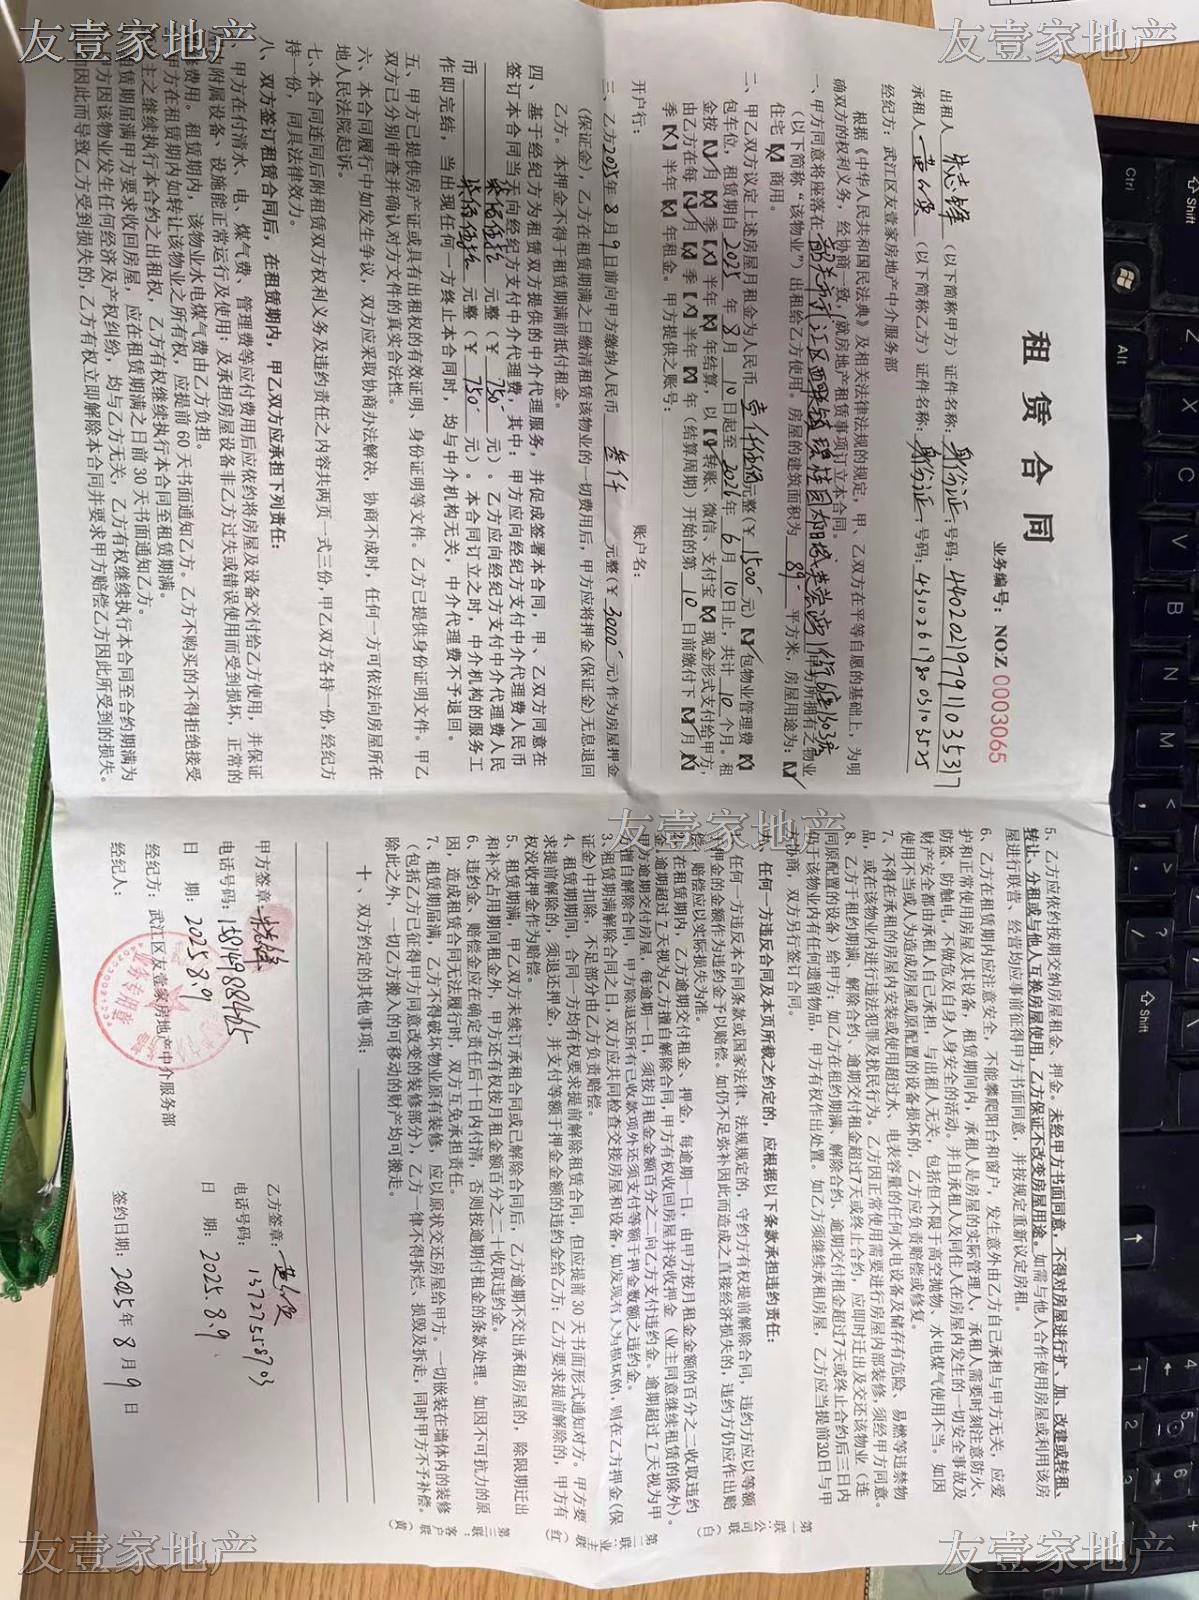 友壹家地产
友壹家地产
租赁合同
业务编号：NO:Z 0003065
出租人 （以下简称甲方）证件名称：身份证 号码：440202197911035317
承租人 （以下简称乙方）证件名称：身份证 号码：431026198003103525
经纪方：武江区友壹家房地产中介服务部
根据《中华人民共和国民法典》及相关法律法规的规定，甲、乙双方在平等自愿的基础上，为明
确双方的权利义务，经协商一致，就房地产租赁事项订立本合同。
一、甲方同意将座落在
（以下简称“该物业”）出租给乙方使用。房屋的建筑面积为 89 平方米，房屋用途为：
住宅 商用。
二、甲乙双方议定上述房屋月租金为人民币 元整（￥1500 元） 包物业管理费
包车位，租赁期自 2025 年 8 月 10 日起至 2026 年 6 月 10 日止，共计 10 个月。租
金按 为 季 半年 年结算，以 转账、微信、支付宝 现金形式支付给甲方，
由乙方在每 月 季 半年 年（结算周期）开始的第 10 日前缴付下 月
季 半年 年租金。甲方提供之账号：
开户行： 账户名：
三、乙方2025年8月9日前向甲方缴纳人民币 叁仟 元整（￥3000 元）作为房屋押金
（保证金），乙方在租赁期满之日缴清租赁该物业的一切费用后，甲方应将押金（保证金）无息退回
乙方。本押金不得于租赁期满前抵付租金。
四、基于经纪方为租赁双方提供的中介代理服务，并促成签署本合同，甲、乙双方同意在
签订本合同当天向经纪方支付中介代理费，其中：甲方应向经纪方支付中介代理费人民币
柒佰伍拾 元整（￥750 元）。乙方应向经纪方支付中介代理费人民
币 柒佰伍拾 元整（￥750 元）。本合同订立之时，中介机构的服务工
作即完结，当出现任何一方终止本合同时，均与中介机构无关，中介代理费不予退回。
五、甲方已提供房产证或具有出租权的有效证明、身份证明等文件。乙方已提供身份证明文件。甲乙
双方已分别审查并确认对方文件的真实合法性。
六、本合同履行中如发生争议，双方应采取协商办法解决，协商不成时，任何一方可依法向房屋所在
地人民法院起诉。
七、本合同连同后附租赁双方权利义务及违约责任之内容共两页一式三份，甲乙双方各持一份，经纪方
持一份，同具法律效力。
八、双方签订租赁合同后，在租赁期内，甲乙双方应承担下列责任：
、甲方在付清水、电、煤气费、管理费等应付费用后应依约将房屋及设备交付给乙方使用，并保证
附属设备、设施能正常运行及使用；及承担房屋设备非乙方过失或错误使用而受到损坏，正常的
修费用。租赁期内，该物业水电煤气费由乙方负担。
甲方在租赁期内如转让该物业之所有权，应提前60天书面通知乙方。乙方不购买的不得拒绝接受
主之继续执行本合约之出租权，乙方有权继续执行本合同至租赁期满。
租赁期届满甲方要求收回房屋，应在租赁期满之日前30天书面通知乙方。
甲方因该物业发生任何经济及产权纠纷，均与乙方无关，乙方有权继续执行本合同至合约期满为
因此而导致乙方受到损失的，乙方有权立即解除本合同并要求甲方赔偿乙方因此所受到的损失。
友壹家地产
5、乙方应依约按期交纳房屋租金、押金。未经甲方书面同意，不得对房屋进行扩、加、改建或转租、
转让、分租或与他人互换房屋使用，乙方保证不改变房屋用途。如需与他人合作使用房屋或利用该房
屋进行联营、经营均应事前征得甲方书面同意，并按规定重新议定房租。
6、乙方在租赁期内应注意安全，不能攀爬阳台和窗户，发生意外由乙方自己承担与甲方无关，应爱
护和正常使用房屋及其设备，租赁期间内，承租人是房屋的实际管理人，承租人需要时刻注意防火、
防盗、防触电，不做危及自身人身安全的活动。并且承租人及同住人在房屋内发生的一切安全事故及
财产安全都由承租人自己承担，与出租人无关，包括但不限于高空抛物、水电煤气使用不当。如因
使用不当或人为造成房屋或原配置的设备损坏的，乙方应负责赔偿或修复。
7、不得在承租的房屋内安装或使用超过水、电表容量的任何水电设备及储存有危险、易燃等违禁物
品，或在该物业内进行违法犯罪及扰民行为。乙方因正常使用需要进行房屋内部装修，须经甲方同意。
8、乙方于租约期满、解除合约、逾期交付租金超过7天或终止合约，应即时迁出及交还该物业（连
同原配置的设备）给甲方；如乙方在租约期满、解除合约、逾期交付租金超过7天或终止合约后三日内
仍于该物业内有任何遗留物品，甲方有权作出处置。如乙方须继续承租房屋，乙方应当提前30日与甲
方协商，双方另行签订合同。
九、任何一方违反合同及本页所载之约定的，应根据以下条款承担违约责任：
1、任何一方违反本合同条款或国家法律、法规规定的，守约方有权提前解除合同，违约方应以等额
于押金的金额作为违约金予以赔偿。如仍不足弥补因此而造成之直接经济损失的，违约方仍应作出赔
偿，赔偿应以实际损失为准。
2、在租赁期内，乙方逾期交付租金、押金，每逾期一日，由甲方按月租金金额的百分之二收取违约
金，逾期超过7天视为乙方擅自解除合同，甲方有权收回房屋并没收押金（业主同意继续租赁的除外）。
甲方逾期交付房屋，每逾期一日，须按月租金金额百分之二向乙方支付违约金。逾期超过7天视为甲
方擅自解除合同，甲方除退还所有已收款项外还须支付等额于押金数额之违约金。
3、租赁期满解除合同之日，双方应共同检查交接房屋和设备，如发现有人为损坏的，则在乙方押金（保
证金）中扣除，不足部分由乙方负责赔偿。
4、租赁期期间，合同一方均有权要求提前解除租赁合同，但应提前30天书面形式通知对方。甲方要
求提前解除的，须退还押金，并支付等额于押金金额的违约金给乙方；乙方要求提前解除的，甲方有
权没收押金作为赔偿。
5、租赁期满，甲乙双方未续订承租合同或已解除合同后，乙方逾期不交出承租房屋的，除限期迁出
和补交占用期间租金外，甲方还有权按月租金额百分之二十收取违约金。
6、违约金、赔偿金应在确定责任后十日内付清，否则按逾期付租金的条款处理。如因不可抗力的原
因，造成租赁合同无法履行时，双方互免承担责任。
7、租赁期届满，乙方不得破坏物业原有装修，应以原状交还房屋给甲方。一切嵌装在墙体内的装修
（包括乙方已征得甲方同意改变的装修部分），乙方一律不得拆烂、损毁及拆走，同时甲方不予补偿。
除此之外，一切乙方搬入的可移动的财产均可搬走。
十、双方约定的其他事项：
甲方签章： 乙方签章：
电话号码： 电话号码：13727558703
日 期：2025.8.9 日 期：2025.8.9
经纪方：武江区友壹家房地产中介服务部
经纪人： 签约日期：2025年8月9日
第一联：公司联（白）
第二联：业主联（红）
第三联：客户联（黄）
友壹家地产
友壹家地产